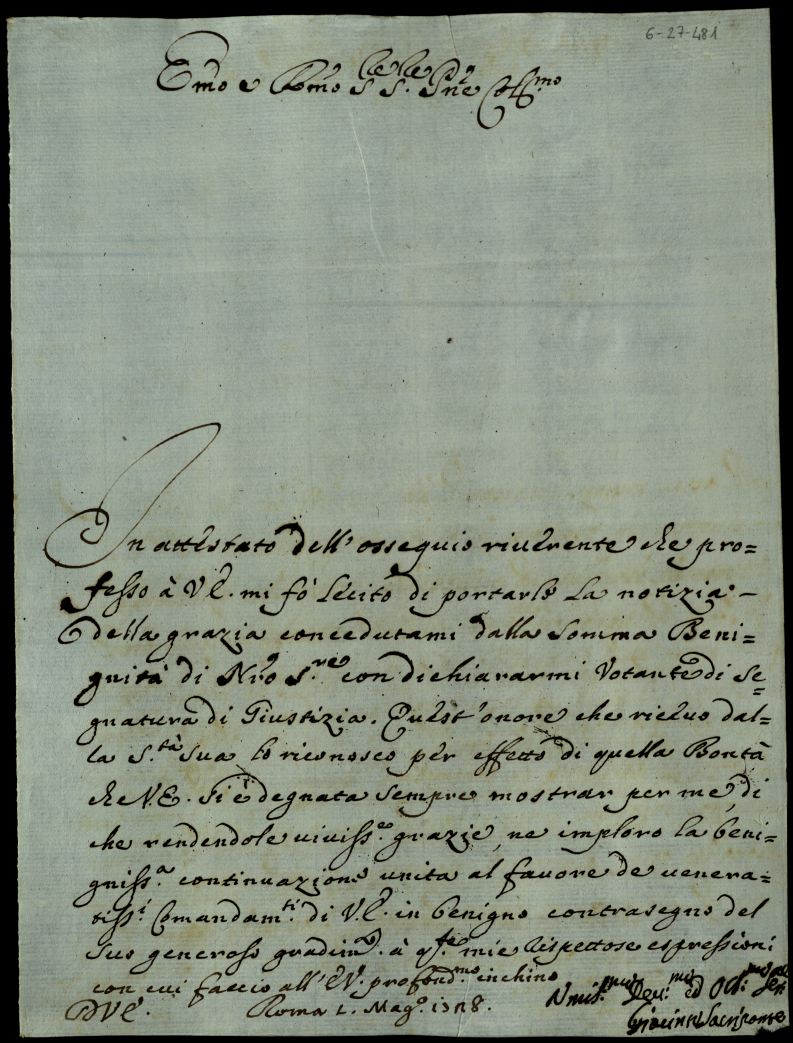 6-27-481
Emo e Rmo Sig.re Sig.re Pne Col.mo
In attestato dell'ossequio riverente che pro=
fesso à V.E. mi fò lecito di portarle la notizia
della grazia concedutami dalla somma Beni=
gnità di Nro S.re con dichiararmi Votante di Se=
gnatura di Giustizia. Quest'onore che ricevo dal=
la S.tà Sua lo riconosco per effetto di quella Bontà
che V.E. si è degnata sempre mostrar per me, di
che rendendole viviss.e grazie, ne imploro la beni=
gniss.a continuazione unita al favore de venera=
tiss.i Comandam.ti di V.E. in benigno contrasegno del
suo generoso gradim.o à q.ste mie rispettose espressioni
con cui faccio all'E.V. profond.mo inchino
D V.E. Roma Mag.o
Umil.mo Dev.mo ed Obl.mo Ser.
Giacinto Sacripante